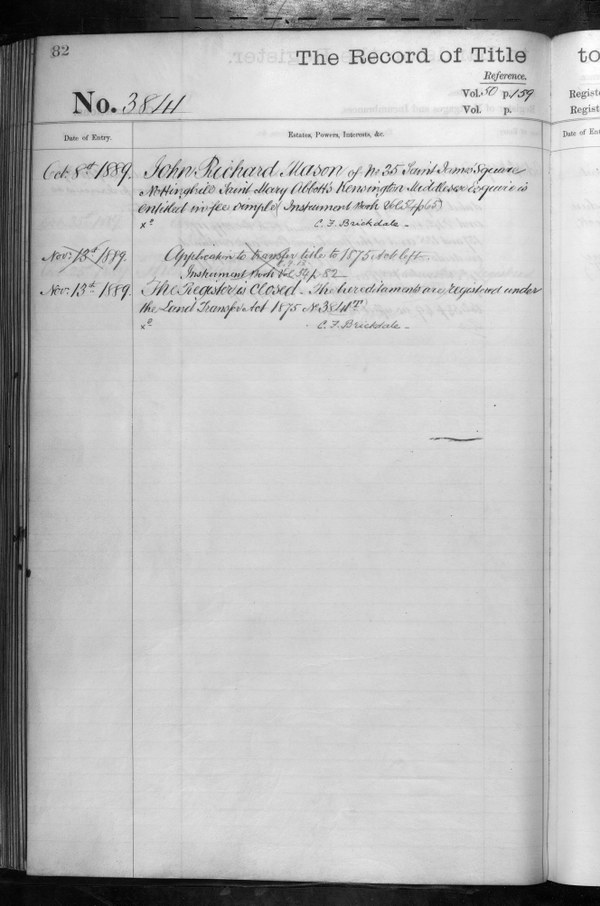 82
The Record of Title
Reference.
No. 3841
Vol. 50 p. 159
Vol. p.
Date of Entry.
Estates, Powers, Interests, &c.
Oct. 8th 1889. John Richard Mason of No 35 Saint James Square
Nottinghill Saint Mary Abbotts Kensington Middlesex Esquire is
entitled in fee simple (Instrument Book Vol 54 p 65)
C. F. Brickdale -
Nov. 13th 1889. Application to transfer title to 1875 Act left.
Instrument Book Vol 54 p. 82 -
Nov. 13th 1889. The Register is Closed. The hereditaments are registered under
the Land Transfer Act 1875 No 3841
C. F. Brickdale -
to
Registe
Registe
Date of Ent